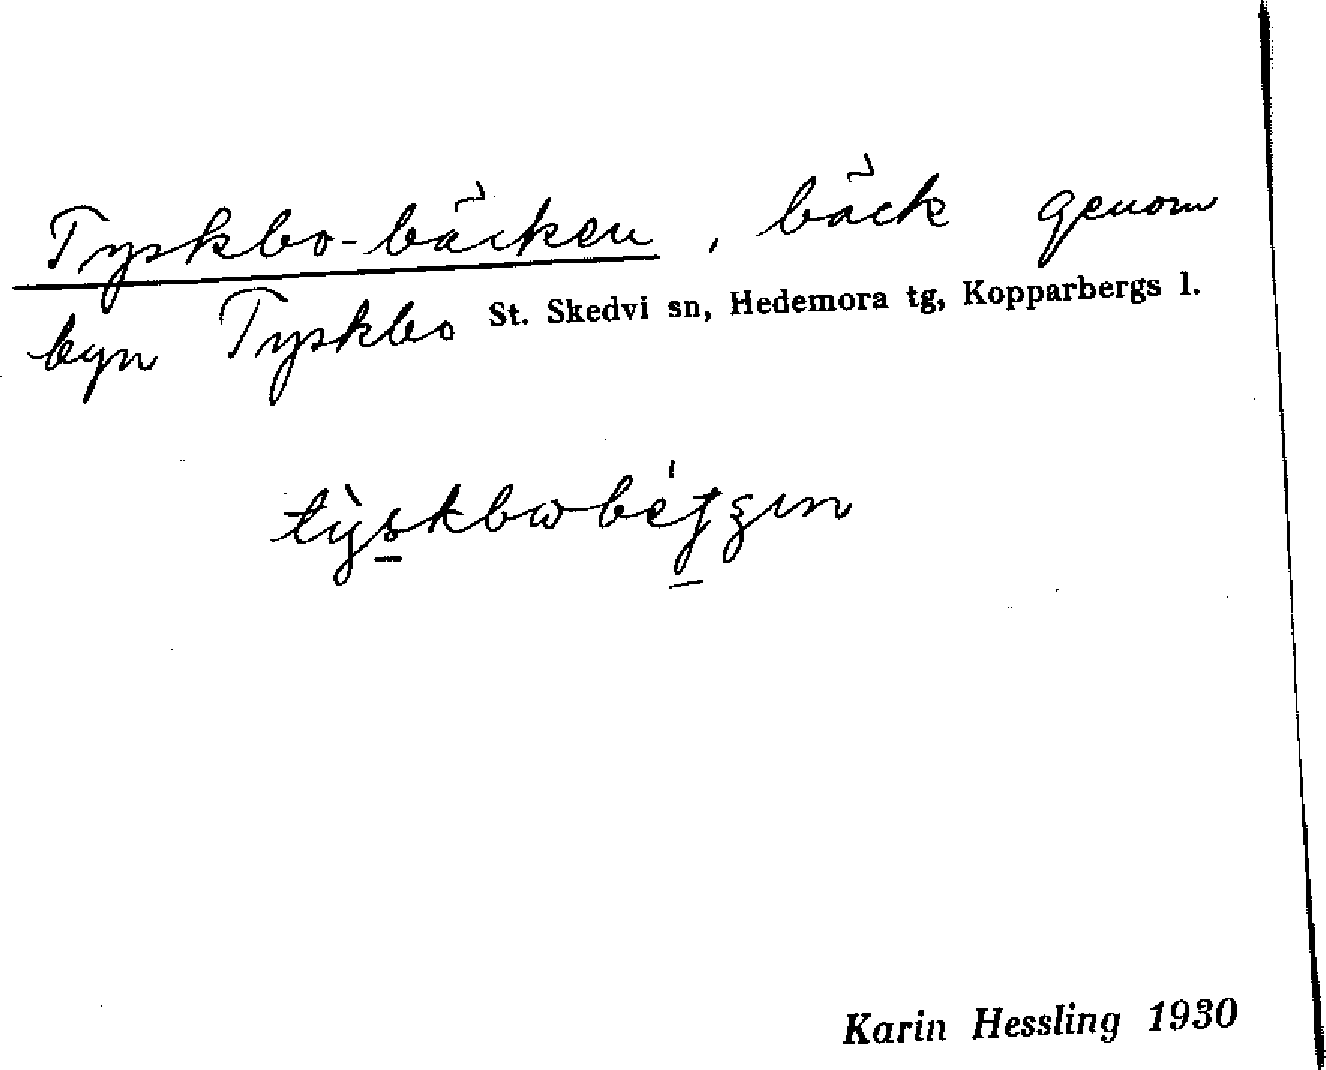 Tyskbo-bäcken, bäck genom
byn Tyskbo St. Skedvi sn, Hedemora tg, Kopparbergs l.
Karin Hessling 1930